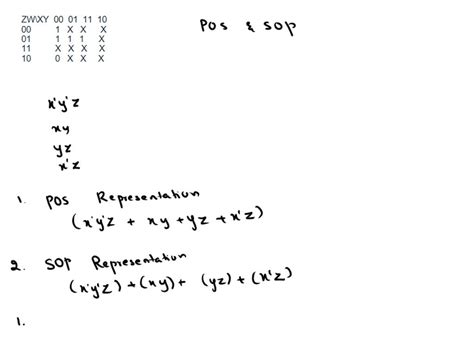 ZW\XY 00 01 11 10
00 1 X X X
01 1 1 1 X
11 X X X X
10 0 X X X
POS & SOP
x'y'z
xy
yz
x'z
1. POS Representation
(x'y'z + xy + yz + x'z)
2. SOP Representation
(x'y'z) + (xy) + (yz) + (x'z)
1.